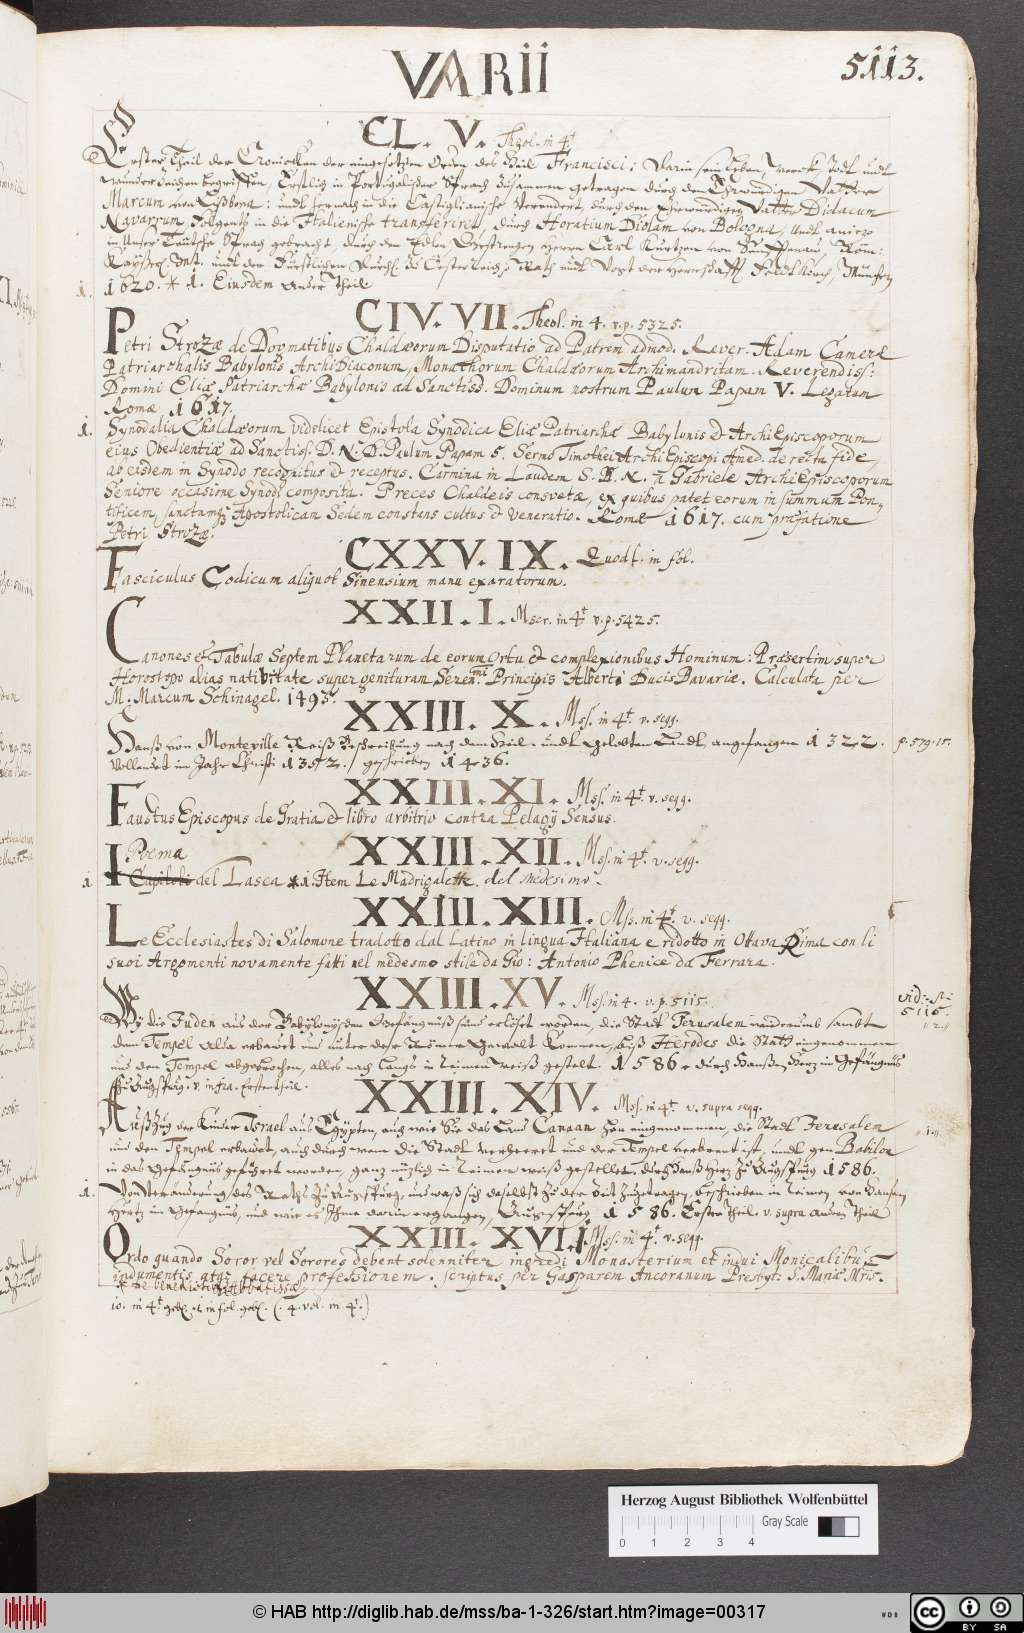 VARII
5113.
CL. V. Theol. in 4t
Erster Theil der Cronicken der eingesetzen Orden des Heil Francisci: Darin sein Leben, Todt undt
wunder Zeichen begriffen, Erstlich in Portugalischer Sprach Zusammen getragen durch den Ehrwürdigen Vatter
Marcum von Lysbona: undt hernach in die Castiglianische Verendert, durch den Ehrwürdigen Vatter Didacum
Navarrum, Folgentz in die Italienische transferiret, durch Horatium Diolam von Bologna, Undt anietzo
in Unser Teutsche Sprach gebracht, durch den Edlen Gestrengen Herrn Carl Kurtzen von Senfftenau, Röm:
undt der Fürstlichen Durchl. Oesterreich Rath undt Vogt der Herrschafft Feldtkirch, München
1. 1620. * 1. Eiusdem Ander Theil
CIV. VII. Theol. in 4. v. p. 5325.
Petri Strozæ de Dogmatibus Chaldæorum Disputatio ad Patrem admod. Rever. Adam Cameræ
Patriarchalis Babylonis ArchiDiaconum, Monachorum Chaldæorum Archimandritam. Reverendiss:
Domini Eliæ Patriarchæ Babylonis ad Sanctiss. Dominum nostrum Paulum Papam V. Legatum
Romæ 1617.
1. Synodalia Chaldæorum videlicet Epistola Synodica Eliæ Patriarchæ Babylonis & ArchiEpiscoporum
eius Obedientiæ ad Sanctiss. D. N. D. Paulum Papam 5. Sermo Timothei ArchiEpiscopi Amed. de recta fide,
ab eisdem in Synodo recognitus & receptus. Carmina in Laudem S. D. N. à Gabriele ArchiEpiscoporum
Seniore occasione Synodi composita. Preces Chaldeis consvetæ, ex quibus patet eorum in summum Pon,
tificem, sanctamq; Apostolicam Sedem constans cultus & veneratio. Romæ 1617. cum præfatione
Petri Strozæ.
CXXV. IX. Quodl. in fol.
Fasciculus Codicum aliquot Sinensium manu exaratorum.
XXII. I. Mscr. in 4t v. p. 5425.
Canones & Tabulæ Septem Planetarum de eorum Ortu & complexionibus Hominum: Præsertim super
Horoscopo alias nativitate super genituram Seren.mi Principis Alberti Ducis Bavariæ. Calculata per
M. Marcum Schinagel. 1493.
XXIII. X. Mss. in 4t. v. seqq.
Hanß von Monteville Reiß Beschreibung nach dem Heil. undt gelobten Landt, angefangen 1322. p. 579. 15.
Vollendet im Jahr Christi 1352. / geschrieben 1436.
XXIII. XI. Mss. in 4t. v. seqq.
Faustus Episcopus de Gratia & libro arbitrio contra Pelagij Sensus.
XXIII. XII. Mss. in 4t. v. seqq.
Poema
1 I Capitoli del Lasca * 1. Item Le Madrigalette del medesimo.
XXIII. XIII. Mss. in 4t. v. seqq.
Le Ecclesiastes di Salomone tradotto dal Latino in lingua Italiana e ridotto in Ottava Rima con li
suoi Argomenti novamente fatti nel medesmo stile da Gio: Antonio Phenice da Ferrara.
XXIII. XV. Mss. in 4. v. p. 5115.
Wy die Juden aus der Babylonischen Gefängnüß seins erlöset worden, die Stadt Jerusalem widerumb sambt
vid:
5115.
dem Tempel erbawet und unter deß Römer Gewalt kommen, biß Herodes die Stadt eingenommen
und den Tempel abgebrochen, alles nach Langs in Reimen weiß gestalt. 1586. durch Hanßen Hertz im Gefängnüs
Zu Augspurg. v. infra. Erstentheil.
XXIII. XIV. Mss. in 4t v. supra seqq.
Außzug der Kinder Israel aus Egypten, auch wie Sie das Land Canaan han eingenommen, die Stadt Jerusalem
und den Tempel erbawet, auch durch wem die Stadt verheeret und der Tempel verbrent ist, undt gen Babilon
in das Gefängnüs geführet worden, ganz in Reimen weiß gestellet, durch Hanß Hertz Zu Augspurg 1586.
1. Von Veränderung des Raths Zu Augspurg, und waß sich daselbst Zu der Zeit Zugetragen, beschrieben in Reimen, von Hansen
Hertz im Gefängnüs, und wie es Ihme darin ergangen, Augspurg 1586. Erster Theil. v. supra andern Theil
XXIII. XVI. Mss. in 4t. v. seqq.
Ordo quando Soror vel Sorores debent solenniter ingredi Monasterium et indui Monicalibus
indumentis atq; facere professionem. scriptus per Gasparem Ancoranum Presbyt: S. Mariæ Mris.
10. in 4t gebl. et in fol. gebl. (. 4. vol. in 4t.)
Herzog August Bibliothek Wolfenbüttel
Gray Scale
0 1 2 3 4
© HAB http://diglib.hab.de/mss/ba-1-326/start.htm?image=00317
WDB
CC BY SA